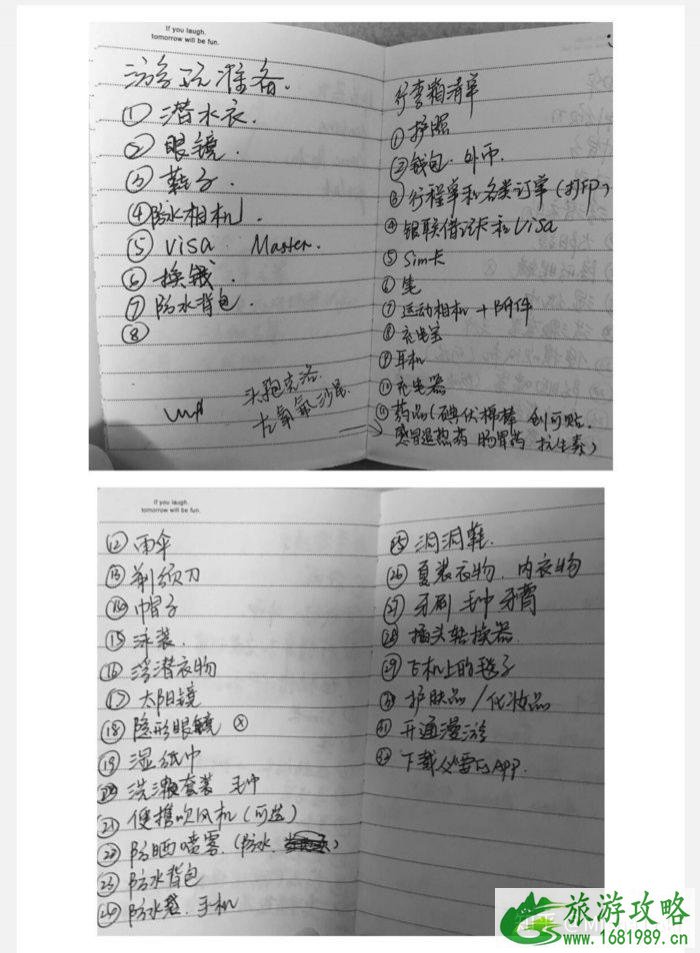 If you laugh,
tomorrow will be fun.
游玩准备.
① 潜水衣.
② 眼镜.
③ 鞋子.
④ 防水相机
⑤ visa Master.
⑥ 换钱.
⑦ 防水背包.
⑧
头孢克洛.
左氧氟沙星.
行李箱清单
① 护照
② 钱包. 外币.
③ 行程单和各类订单(打印)
④ 银联借记卡和Visa
⑤ Sim卡
⑥ 笔
⑦ 运动相机 + 附件
⑧ 充电宝
⑨ 耳机
⑩ 充电器
⑪ 药品(碘伏棉棒 创可贴.
感冒退热药 肠胃药 抗生素)
If you laugh,
tomorrow will be fun.
⑫ 雨伞
⑬ 剃须刀
⑭ 帽子
⑮ 泳装.
⑯ 浮潜衣物
⑰ 太阳镜
⑱ 隐形眼镜 ⓧ
⑲ 湿纸巾
⑳ 洗漱套装 毛巾
㉑ 便携吹风机(可选)
㉒ 防晒喷雾.(防水.)
㉓ 防水背包
㉔ 防水袋. 手机
㉕ 洞洞鞋.
㉖ 夏装衣物. 内衣物
㉗ 牙刷 毛巾 牙膏
㉘ 插头转换器.
㉙ 飞机上的毯子
㉚ 护肤品/化妆品
㉛ 开通漫游
㉜ 下载必需的APP.
旅游攻略
www.1681989.cn